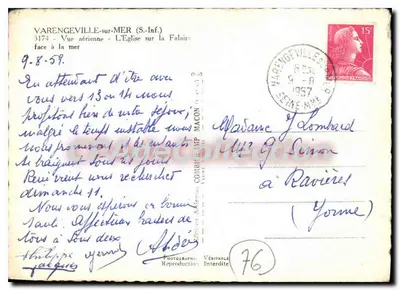 VARENGEVILLE-sur-MER (S.-Inf.)
3174 - Vue aérienne - L'Eglise sur la Falaise
face à la mer
9.8.59.
En attendant d'être avec
vous vers 13 ou 14 nous
profitons bien de notre séjour,
malgré le temps instable nous
nous promenons et les enfants
se baignent tous les jours
René vient nous rechercher
dimanche 11.
Nous vous espérons en bonne
santé. Affectueux baisers de
tous à vous deux
Philippe
Jacques
Madame J Lombard
à Ravières
(Yonne)
VARENGEVILLE S. MER
9 - 8
1957
SEINE-INFRE
15F
COMBIER IMP. MACON
PHOTOGRAPHIE VÉRITABLE
Reproduction Interdite
76